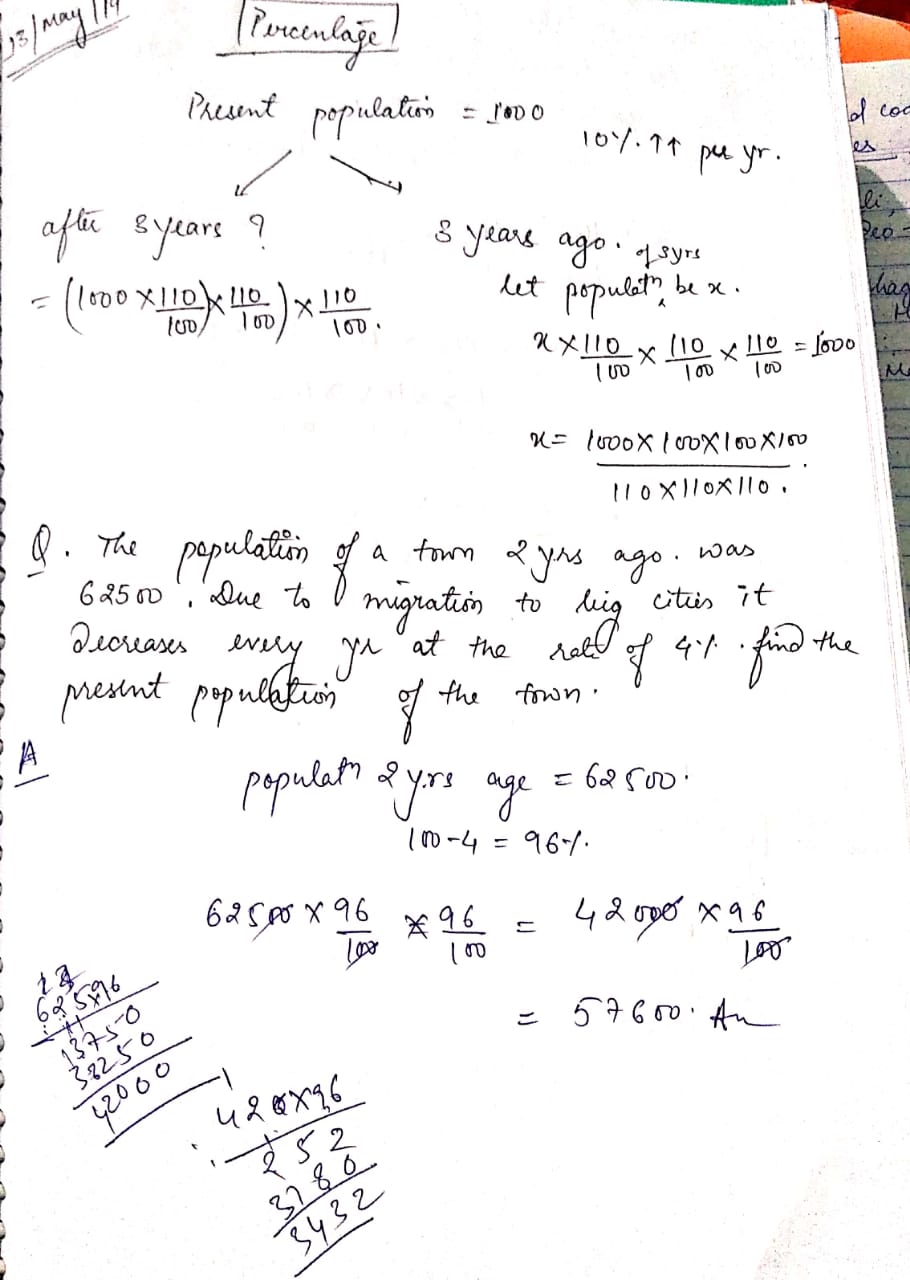 13/May/19
Percentage
Present population = 1000
10%. ↑↑ per yr.
after 3 years ?
= (1000 × 110/100 × 110/100) × 110/100.
3 years ago.
let populatn of 3yrs be x.
x × 110/100 × 110/100 × 110/100 = 1000
x = 1000 × 100 × 100 × 100 / 110 × 110 × 110.
Q. The population of a town 2 yrs ago. was
62500. Due to migration to big cities it
Decreases every yr at the rate of 4%. find the
present population of the town.
A
populatn 2 yrs age = 62500.
100-4 = 96%.
62500 × 96/100 × 96/100 = 42000 × 96/100
= 57600. An
625×96
13750
38250
42000
420×96
252
3780
3432